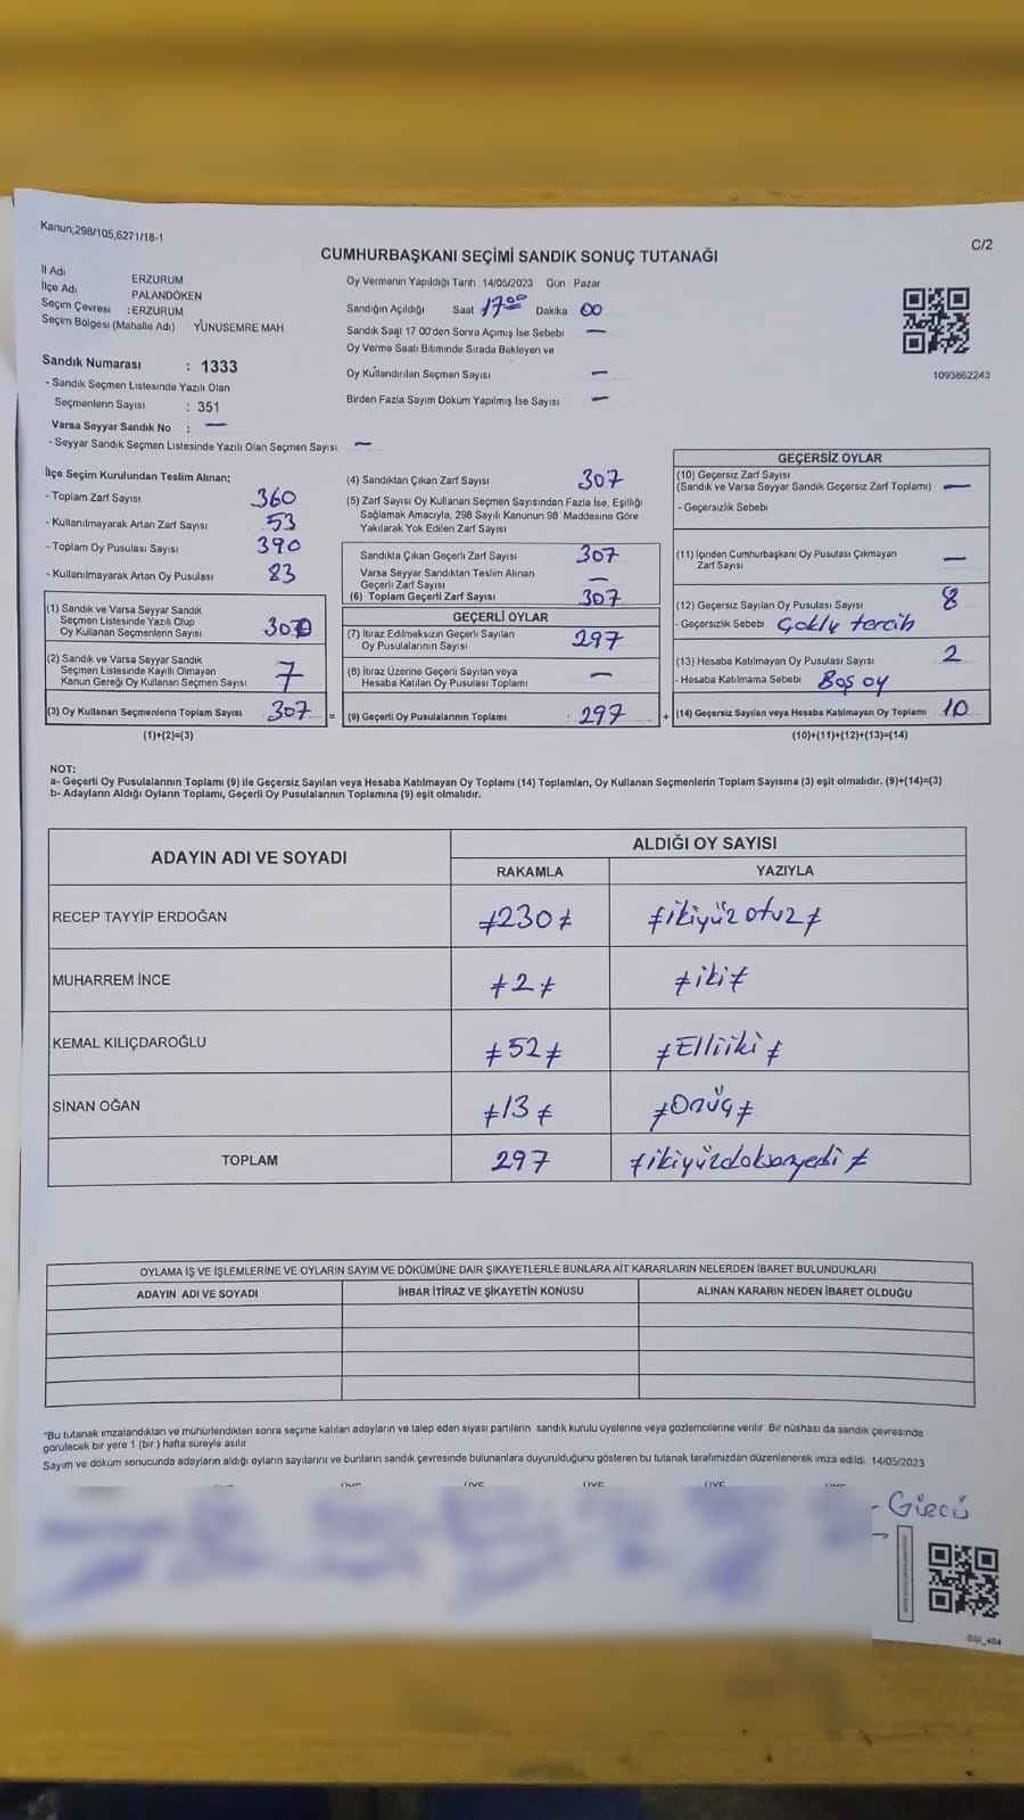 Kanun;298/105,6271/18-1
C/2
CUMHURBAŞKANI SEÇİMİ SANDIK SONUÇ TUTANAĞI
İl Adı ERZURUM
İlçe Adı PALANDÖKEN
Seçim Çevresi :ERZURUM
Seçim Bölgesi (Mahalle Adı) YUNUSEMRE MAH
Sandık Numarası : 1333
- Sandık Seçmen Listesinde Yazılı Olan
Seçmenlerin Sayısı : 351
Varsa Seyyar Sandık No : —
- Seyyar Sandık Seçmen Listesinde Yazılı Olan Seçmen Sayısı —
Oy Vermenin Yapıldığı Tarih 14/05/2023 Gün Pazar
Sandığın Açıldığı Saat 1700 Dakika 00
Sandık Saat 17 00'den Sonra Açımış İse Sebebi —
Oy Verme Saati Bitiminde Sırada Bekleyen ve
Oy Kullandırılan Seçmen Sayısı —
Birden Fazla Sayım Döküm Yapılmış İse Sayısı —
1093862243
İlçe Seçim Kurulundan Teslim Alınan;
- Toplam Zarf Sayısı 360
- Kullanılmayarak Artan Zarf Sayısı 53
- Toplam Oy Pusulası Sayısı 390
- Kullanılmayarak Artan Oy Pusulası 83
(1) Sandık ve Varsa Seyyar Sandık
Seçmen Listesinde Yazılı Olup
Oy Kullanan Seçmenlerin Sayısı 300
(2) Sandık ve Varsa Seyyar Sandık
Seçmen Listesinde Kayıtlı Olmayan
Kanun Gereği Oy Kullanan Seçmen Sayısı 7
(3) Oy Kullanan Seçmenlerin Toplam Sayısı 307 =
(1)+(2)=(3)
(4) Sandıktan Çıkan Zarf Sayısı 307
(5) Zarf Sayısı Oy Kullanan Seçmen Sayısından Fazla İse, Eşitliği
Sağlamak Amacıyla, 298 Sayılı Kanunun 98 Maddesine Göre
Yakılarak Yok Edilen Zarf Sayısı
Sandıkta Çıkan Geçerli Zarf Sayısı 307
Varsa Seyyar Sandıktan Teslim Alınan
Geçerli Zarf Sayısı —
(6) Toplam Geçerli Zarf Sayısı 307
GEÇERLİ OYLAR
(7) İtiraz Edilmeksizin Geçerli Sayılan
Oy Pusulalarının Sayısı 297
(8) İtiraz Üzerine Geçerli Sayılan veya
Hesaba Katılan Oy Pusulası Toplamı —
(9) Geçerli Oy Pusulalarının Toplamı : 297 +
GEÇERSİZ OYLAR
(10) Geçersiz Zarf Sayısı
(Sandık ve Varsa Seyyar Sandık Geçersiz Zarf Toplamı) —
- Geçersizlik Sebebi
(11) İçinden Cumhurbaşkanı Oy Pusulası Çıkmayan
Zarf Sayısı —
(12) Geçersiz Sayılan Oy Pusulası Sayısı 8
- Geçersizlik Sebebi Çoklu tercih
(13) Hesaba Katılmayan Oy Pusulası Sayısı 2
- Hesaba Katılmama Sebebi Boş oy
(14) Geçersiz Sayılan veya Hesaba Katılmayan Oy Toplamı 10
(10)+(11)+(12)+(13)=(14)
NOT:
a- Geçerli Oy Pusulalarının Toplamı (9) ile Geçersiz Sayılan veya Hesaba Katılmayan Oy Toplamı (14) Toplamları, Oy Kullanan Seçmenlerin Toplam Sayısına (3) eşit olmalıdır. (9)+(14)=(3)
b- Adayların Aldığı Oyların Toplamı, Geçerli Oy Pusulalarının Toplamına (9) eşit olmalıdır.
ADAYIN ADI VE SOYADI ALDIĞI OY SAYISI
RAKAMLA YAZIYLA
RECEP TAYYİP ERDOĞAN ≠230≠ ≠ikiyüz otuz≠
MUHARREM İNCE ≠2≠ ≠iki≠
KEMAL KILIÇDAROĞLU ≠52≠ ≠Elliiki≠
SİNAN OĞAN ≠13≠ ≠Onüç≠
TOPLAM 297 ≠ikiyüzdoksanyedi≠
OYLAMA İŞ VE İŞLEMLERİNE VE OYLARIN SAYIM VE DÖKÜMÜNE DAİR ŞİKAYETLERLE BUNLARA AİT KARARLARIN NELERDEN İBARET BULUNDUKLARI
ADAYIN ADI VE SOYADI İHBAR İTİRAZ VE ŞİKAYETİN KONUSU ALINAN KARARIN NEDEN İBARET OLDUĞU
*Bu tutanak imzalandıktan ve mühürlendikten sonra seçime katılan adayların ve talep eden siyasi partilerin sandık kurulu üyelerine veya gözlemcilerine verilir Bir nüshası da sandık çevresinde
görülecek bir yere 1 (bir) hafta süreyle asılır
Sayım ve döküm sonucunda adayların aldığı oyların sayılarını ve bunların sandık çevresinde bulunanlara duyurulduğunu gösteren bu tutanak tarafımızdan düzenlenerek imza edildi 14/05/2023